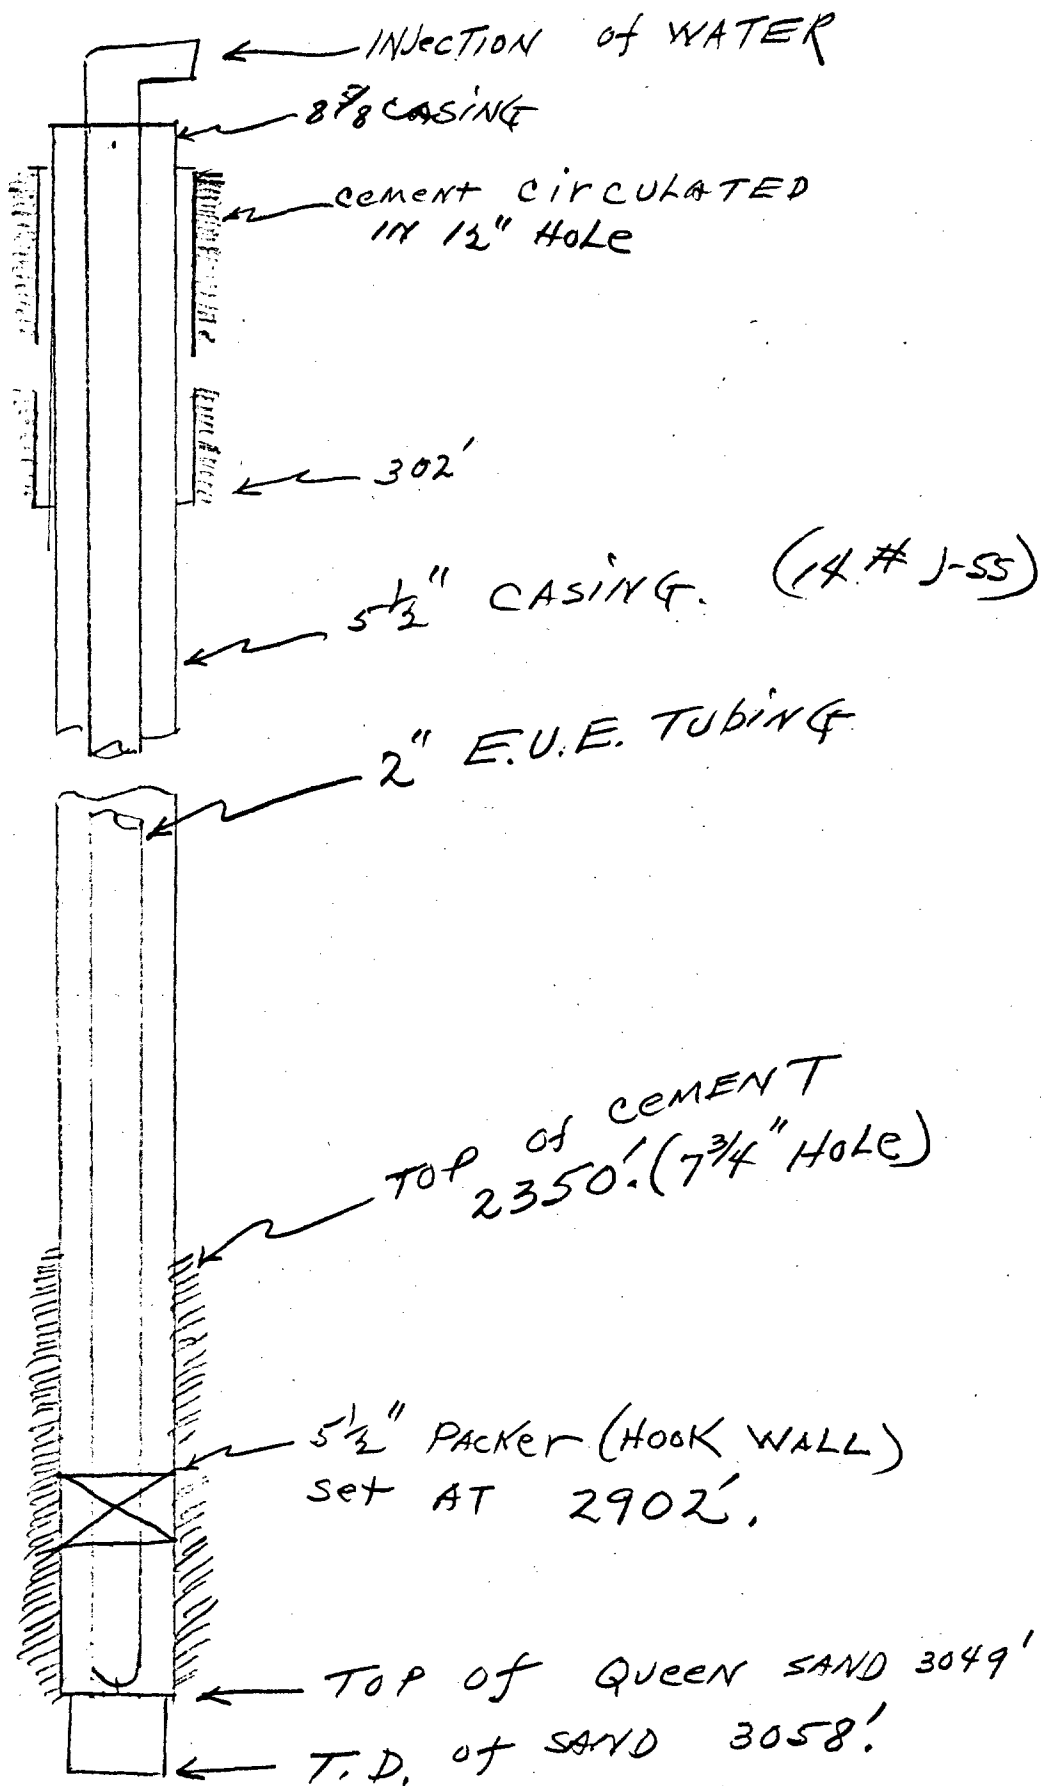 INJECTION of WATER
8 5/8 CASING
cement CirCULATED
IN 12" HoLe
302'
5 1/2" CASING. (14.# J-55)
2" E.U.E. TUbiNG
TOP of CEMENT
2350'. (7 3/4" HoLe)
5 1/2" PACKer (HOOK WALL)
Set AT 2902'.
TOP of QUEEN SAND 3049'
T.D. of SAND 3058'.